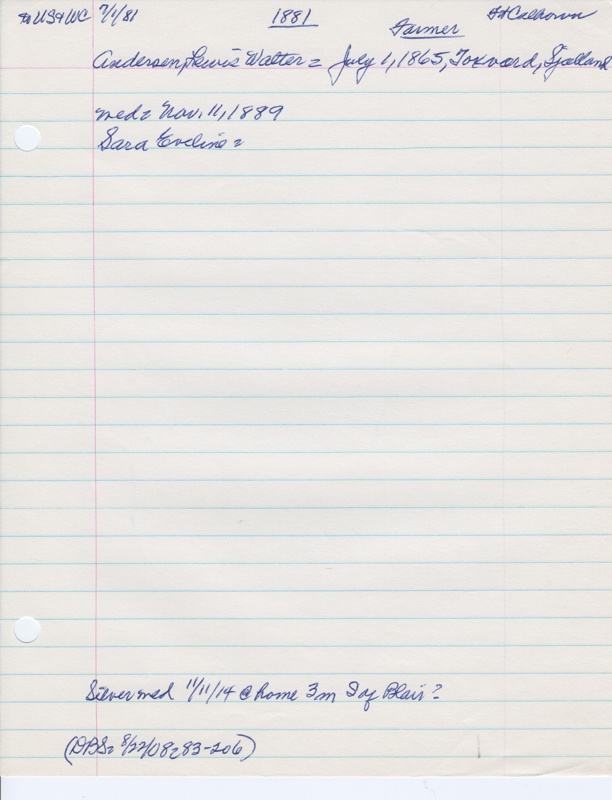 to US & WC 7/1/81 1881 Ft Calhoun
Farmer
Andersen, Lewis Walter = July 1, 1865, Toxvard, Sjalland
med = Nov. 11, 1889
Sara Eveline =
Silver med 11/11/14 @ home 3m of Blair?
(DBS= 8/22/08=83-206)